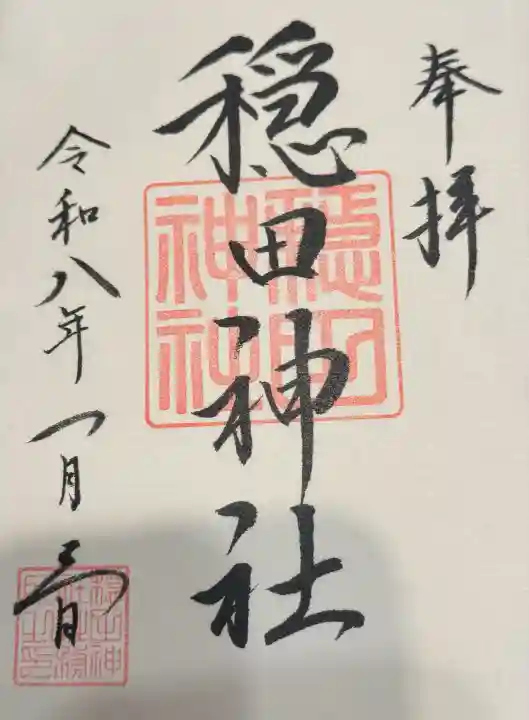 奉拝
穏田神社
令和八年一月三日
穏田神社